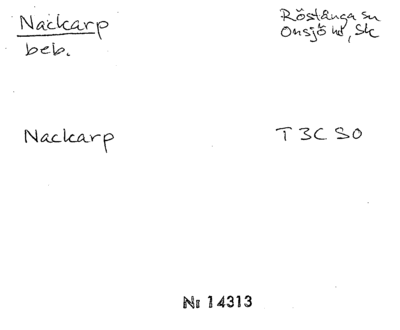 Nackarp
beb.
Röstånga sn
Onsjö hd, Sk
Nackarp
T 3C SO
Nr 14313